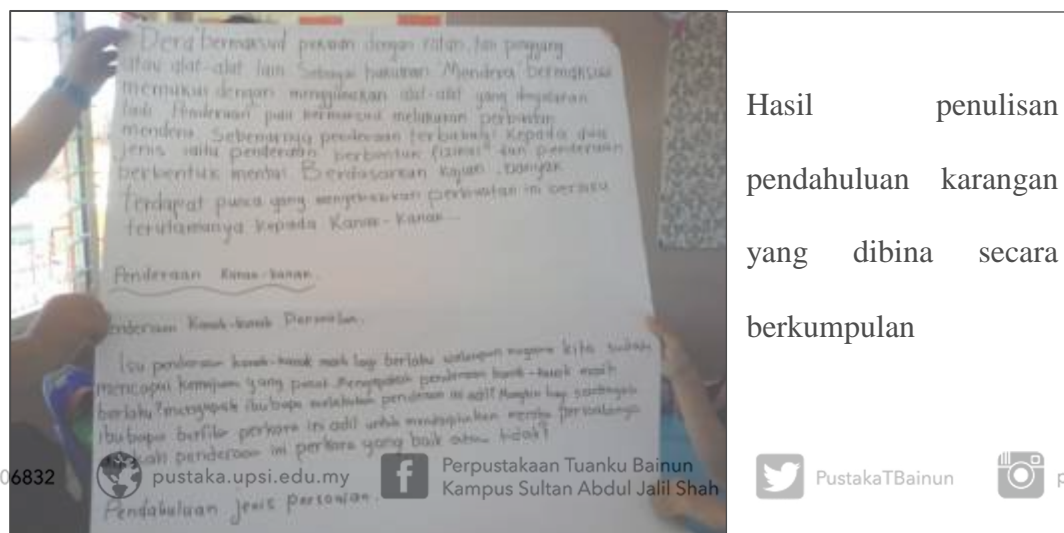 Dera bermaksud pukulan dengan rotan, dan
atau alat-alat lain Sebagai hukuman Mendera bermaksud
memukul dengan menggunakan alat-alat yang
tadi Penderaan pula bermaksud melakukan perbuatan
mendera. Sebenarnya penderaan terbahagi kepada dua
jenis iaitu penderaan berbentuk fizikal dan penderaan
berbentuk mental Berdasarkan kajian, banyak
terdapat punca yang menyebabkan perbuatan ini berlaku
terutamanya kepada Kanak-kanak.
Penderaan Kanak-kanak.
Penderaan Kanak-kanak
Isu penderaan kanak-kanak masih lagi berlaku walaupun negara kita sudah
mencapai kemajuan yang pesat. Mengapakah penderaan kanak-kanak masih
berlaku? mengapa ibubapa melakukan penderaan ini Mungkin bagi
ibubapa berfikir perkara ini adil untuk
penderaan ini perkara yang baik atau tidak?
Pendahuluan jenis persoalan.
Hasil penulisan
pendahuluan karangan
yang dibina secara
berkumpulan
06832 pustaka.upsi.edu.my Perpustakaan Tuanku Bainun
Kampus Sultan Abdul Jalil Shah PustakaTBainun p